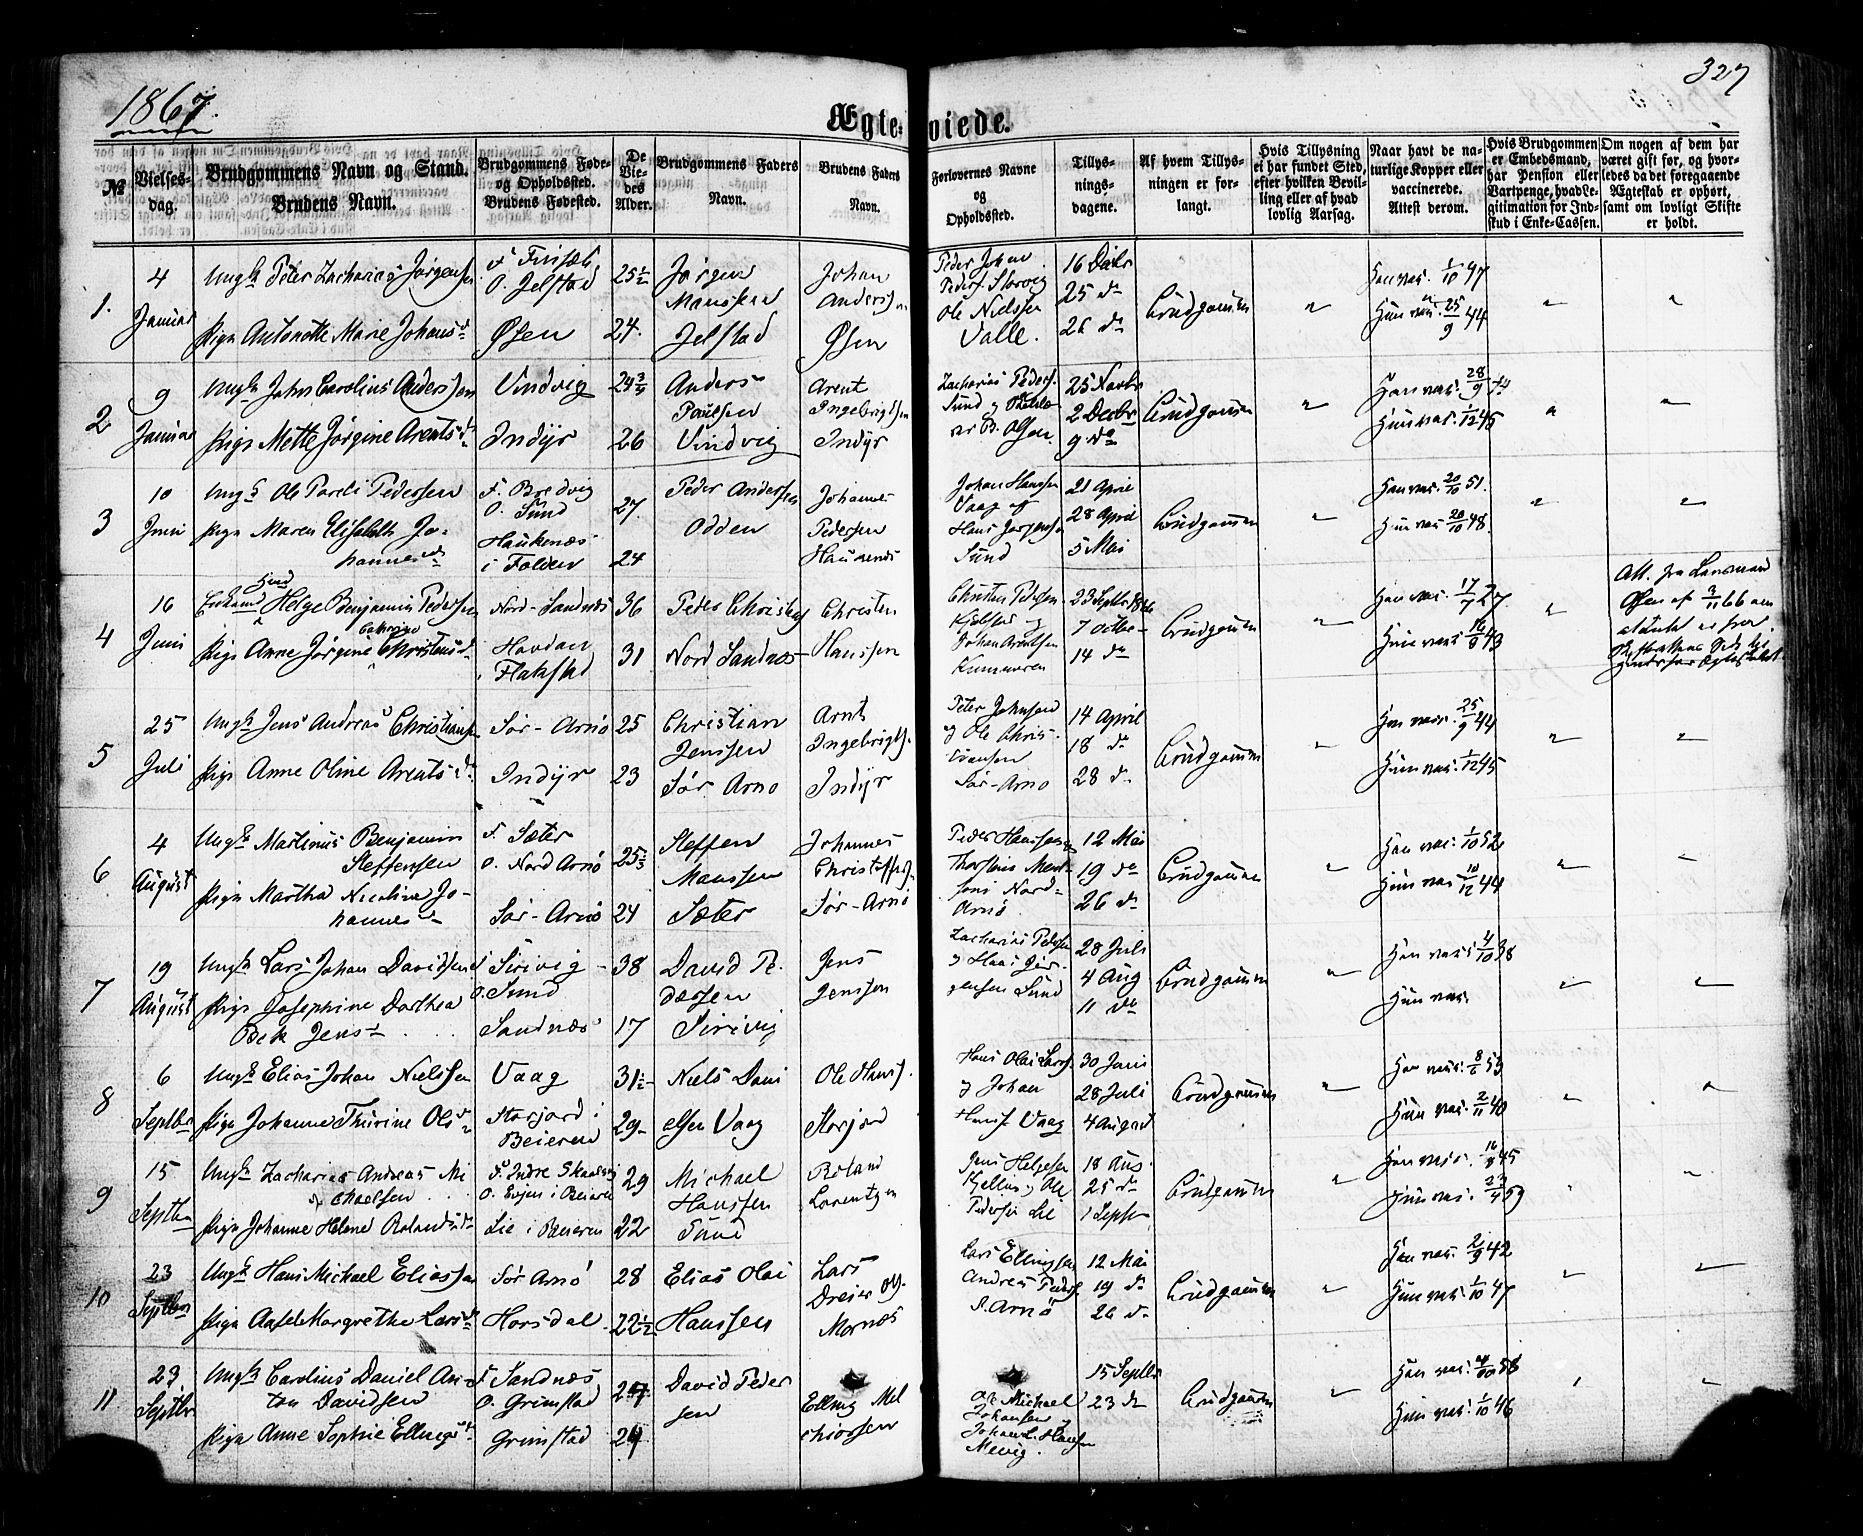 1867.
327
Ægteviede.
№
Vielsesdag.
Brudgommens Navn og Stand.
Brudens Navn.
Brudgommens Føde- og Opholdssted.
Brudens Fødested.
De Viedes Alder.
Brudgommens Faders Navn.
Brudens Faders Navn.
Forlovernes Navne og Opholdssted.
Tillysningsdagene.
Af hvem Tillysningen er forlangt.
Hvis Tillysning ei har fundet Sted, efter hvilken Bevilling eller af hvad lovlig Aarsag.
Naar havt de naturlige Kopper eller vaccinerede. Attest derom.
Hvis Brudgommen er Embedsmand, har Pension eller Vartpenge, hvad Legitimation for Indskud i Enke-Cassen.
Om nogen af dem har været gift før, og hvorledes da det foregaaende Ægteskab er ophørt, samt om lovligt Skifte er holdt.
1.
4 Januar
Ungk Peter Zacharias Jørgensen
Pige Antonette Marie Johansd
O. Jelstad
Øsen
25½
24.
Jørgen Manssen Jelstad
Johan Anderssen Øsen
Peder Johan Peders. Storvig
Ole Nielssen Valle.
16 Decbr
25 do
26 do
Brudgommen
"
Han vac. 1/10 47
Hun vac. 25/9 44
"
"
2
9 Januar
Ungk Johs Carolius Anderssen
Pige Mette Jørgine Arentsd
Vindvig
Indyr
24¾
26
Anders Paulsen Vindvig
Arent Ingebrigtsen Indyr
Zacharias Peders. Sund og
B. Olsen
25 Novbr
2 Decbr
9 do
Brudgommen
"
Han vac. 28/9
Hun vac. 1/12 45
"
"
3
10 Juni
Ungk Ole Pareli Pedersen
Pige Maren Elisabeth Johannesd
F. Bredvig
O. Sund
Haukenæs i Folden
27.
24
Peder Andersen Odden
Johannes Pedersen Haukenæs
Johan Hanssen Vaag og
Hans Jørgensen Sund
21 April
28 April
5 Mai
Brudgommen
"
Han vac. 20/10 51.
Hun vac. 20/10 48.
"
"
4
16 Juni
Helge Benjamin Pedersen
Pige Anne Jørgine Cathrine Christensd
Nord-Sandnæs
Hovdan i Flakstad
36
31
Peder Christens Nord Sandnæs
Christen Hanssen
Christen Pedersen
Johan Arentsen Kunnaveren
23 Septbr 1866
7 Octbr
14 do
Brudgommen
"
Han vac. 17/7 27
Hun vac. 16/8 43
"
Att. fra Lensmand Olsen af 3/11 66 om
5
25 Juli
Ungk Jens Andreas Christians.
Pige Anne Oline Arentsd
Sør-Arnø
Indyr
25
23
Christian Jenssen Sør Arnø
Arnt Ingebrigts. Indyr
Peter Johnsen og Ole Christiansen Sør-Arnø
14 April
18 do
28 do
Brudgommen
"
Han vac. 25/9 44
Hun vac. 1/12 45
"
"
6
4 August
Ungk Martinus Benjamin Steffensen
Pige Martha Nicoline Johannesd
F. Sæter
O. Nord Arnø
Sør-Arnø
25½
24
Steffen Manssen Sæter
Johannes Christoffers. Sør-Arnø
Peder Hanssen og
Nord-Arnø
12 Mai
19 do
26 do
Brudgommen
"
Han vac. 1/10 52
Hun vac. 10/12 44
"
"
7
19 August
Ungk Lars Johan Davidsen
Pige Josephine Dorthea Bek Jensd
F. Sirivig
O. Sund
Sandnæs
38
17
David Pedersen Sirivig
Jens Jenssen
Zacharias Pedersen og Hans Jørgensen Sund
28 Juli
4 Aug
11 do
Brudgommen
"
Han vac. 4/10 38
Hun vac.
"
"
8
6 Septbr
Ungk Elias Johan Nielssen
Pige Johanne Thurine Olsd
Vaag
Storjord i Beieren
31½
29
Niels Danielsen Vaag
Ole Hans. Storjord
Hans Olai Lars. og Johan Hans. Vaag
30 Juni
28 Juli
4 August
Brudgommen
"
Han vac. 8/6 53
Hun vac. 2/11 40
"
"
9
15 Septbr
Ungk Zacharias Andreas Michaelsen
Pige Johanne Helene Rolandsd
F. Indre Skaalsvig
O. Evjen i Beieren
Lie i Beieren
29
22
Michael Hanssen Sund
Roland Lorentzen
Jens Helgesen Kjellns. Ole Pedersen Lie
18 Aug
25 do
1 Septbr
Brudgommen
"
Han vac. 16/8 45
Hun vac. 23/4 59
"
"
10
23 Septbr
Ungk Hans Michael Eliassen
Pige Aasel Margrethe Larsd
Sør Arnø
Horsdal
28
22½
Elias Olai Hanssen
Lars Dreier Ols. Mornæs
Lars Ellingsen
Andreas Peders. S. Arnø
12 Mai
19 do
26 do
Brudgommen
"
Han vac. 2/9 42
Hun vac. 1/10 47
"
"
11
29 Septbr
Ungk Carolius Daniel Anton Davidsen
Pige Anne Sophie Ellingsd
F. Sandnæs
O. Grimstad
Grimstad
24
David Pedersen
Elling Melchiorsen
Michael Johansen
Johan L. Hansen Mevig.
15 Septbr
23 do
Brudgommen
"
Han vac. 58
Hun vac. 1/10 46
"
"